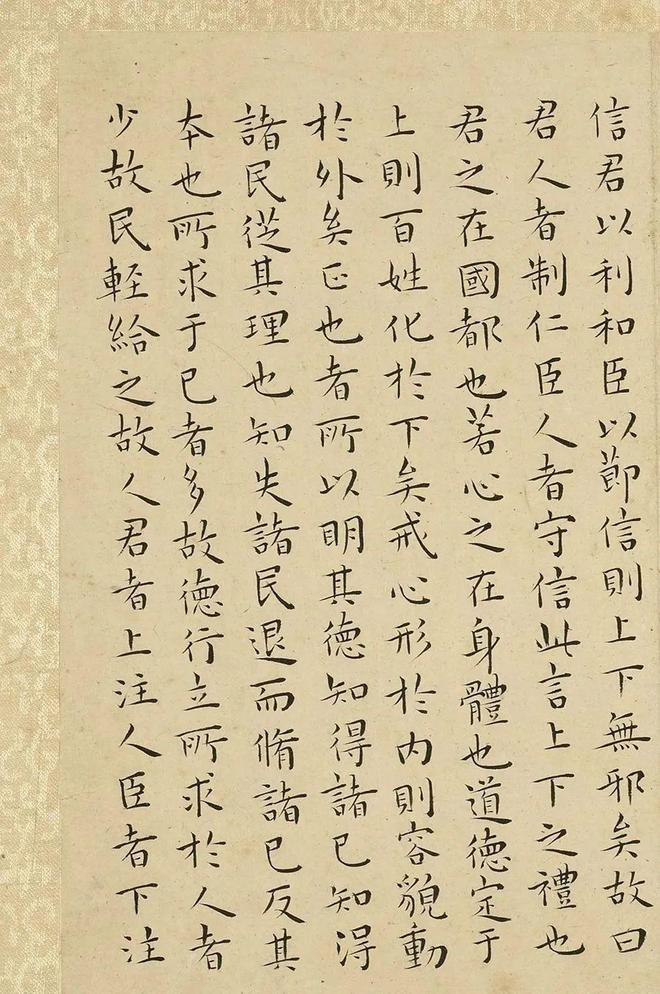 信君以利和臣以節信則上下無邪矣故曰
君人者制仁臣人者守信此言上下之禮也
君之在國都也若心之在身體也道德定于
上則百姓化於下矣戒心形於內則容貌動
於外矣正也者所以明其德知得諸己知得
諸民從其理也知失諸民退而脩諸己反其
本也所求于己者多故德行立所求於人者
少故民輕給之故人君者上注人臣者下注